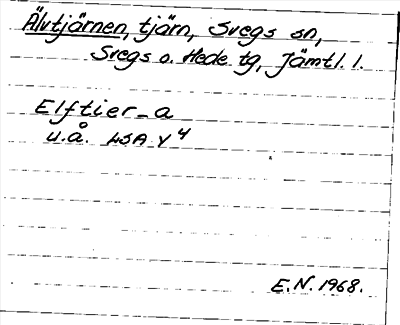 Älvtjärnen, tjärn, Svegs sn,
Svegs o. Hede tg, Jämtl. l.
Elftier_a
u.å. LSA Y4
E.N. 1968.